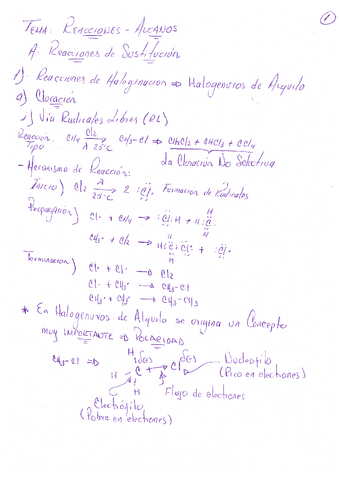 1
TEMA: REACCIONES - ALCANOS
A. Reacciones de Sustitución
1) Reacciones de Haloginacion ⇒ Halogenuros de Alquilo
a) Cloración
Vía Radicales Libres (RL)
Reacción Tipo CH4 Cl2 → λ 25°C CH3-Cl → CH2Cl2 + CHCl3 + CCl4
La Cloración No Selectiva
- Mecanismo de Reacción:
Inicio) Cl2 λ → 25°C 2 :Cl· Formacion de Radicales
Propagación) Cl· + CH4 → :Cl:H + H:C· H H
CH3· + Cl2 → H:C:Cl: + :Cl· H H
Terminacion) Cl· + Cl· → Cl2
Cl· + CH3· → CH3-Cl
CH3· + CH3· → CH3-CH3
* En Halogenuros de Alquilo se origina un Concepto
muy IMPORTANTE ⇒ POLARIDAD
CH3-Cl ⇒ H H C → Cl H
Nucleofilo
(Rico en electrones)
Flujo de electrones
Electrófilo
(Pobre en electrones)